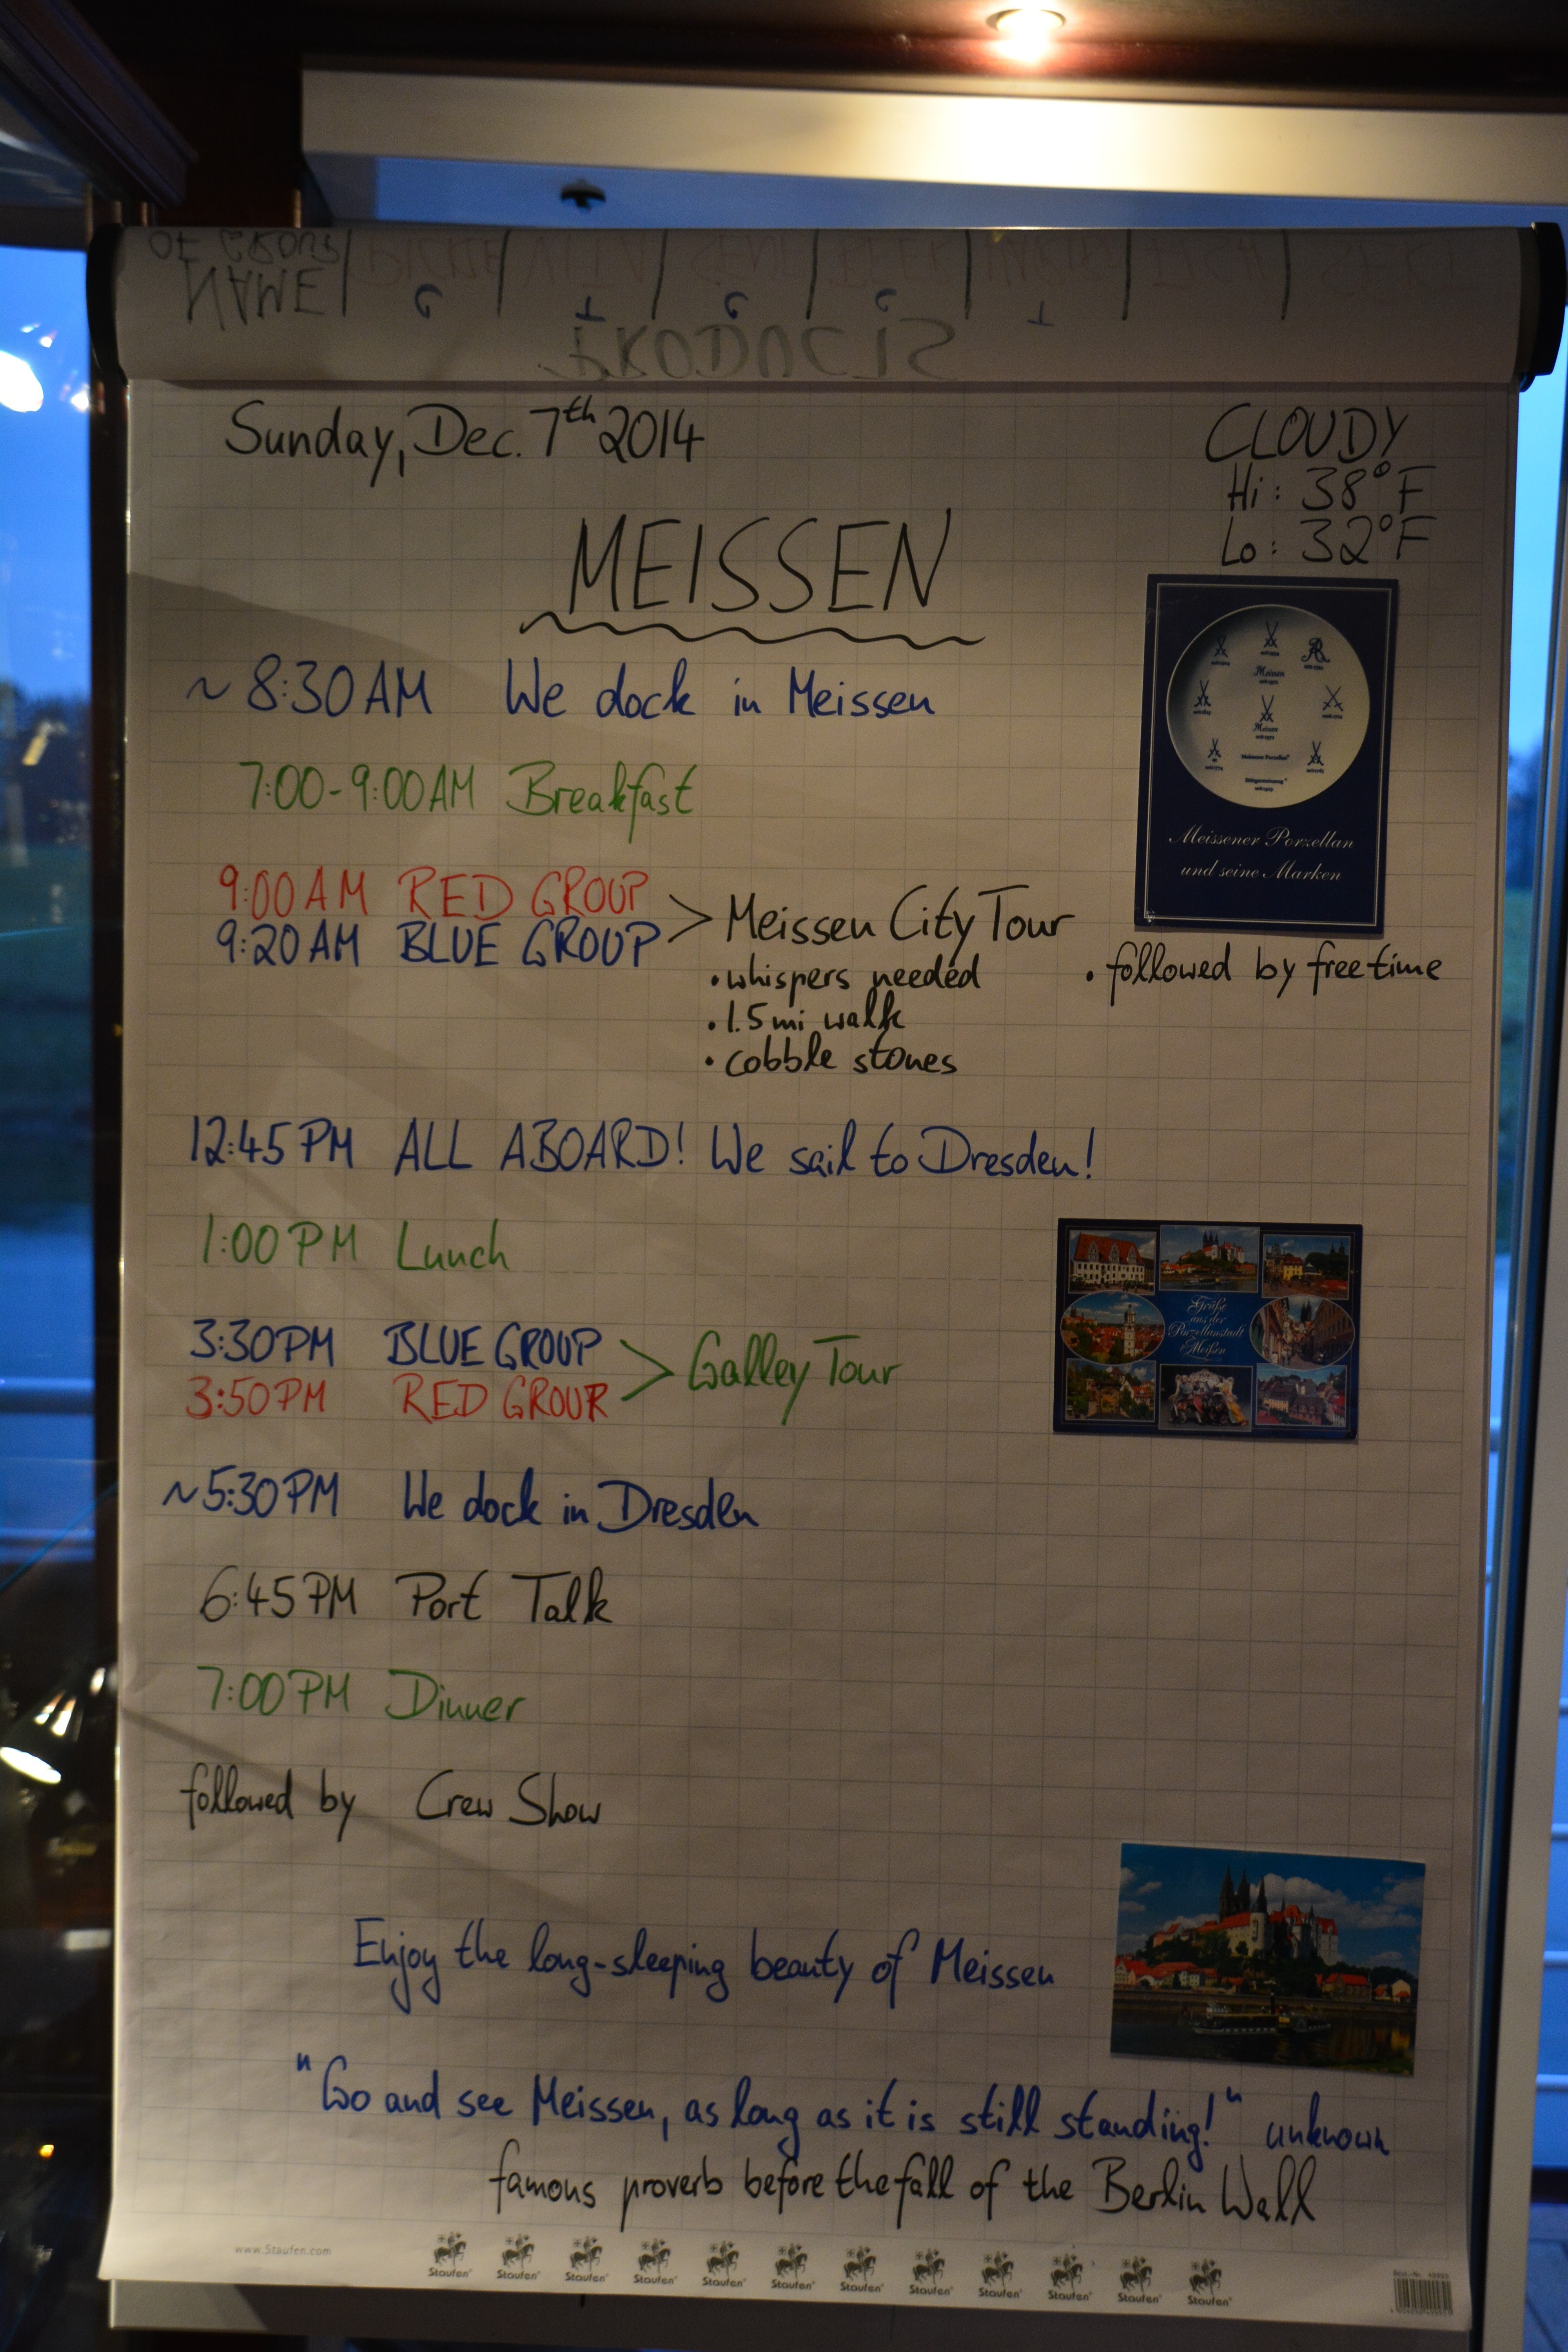 NAME OF GROUP
PRODUCTS
Sunday, Dec. 7th 2014
CLOUDY
Hi: 38°F
Lo: 32°F
MEISSEN
~ 8:30 AM We dock in Meissen
7:00-9:00 AM Breakfast
Meissener Porzellan
und seine Marken
9:00 AM RED GROUP
9:20 AM BLUE GROUP > Meissen City Tour
• whispers needed
• followed by free time
• 1.5 mi walk
• cobble stones
12:45 PM ALL ABOARD! We sail to Dresden!
1:00 PM Lunch
Grüße
aus der
Porzellanstadt
Meißen
3:30 PM BLUE GROUP
3:50 PM RED GROUP > Galley Tour
~5:30 PM We dock in Dresden
6:45 PM Port Talk
7:00 PM Dinner
followed by Crew Show
Enjoy the long-sleeping beauty of Meissen
"Go and see Meissen, as long as it is still standing!" unknown
famous proverb before the fall of the Berlin Wall
www.Staufen.com
Staufen Staufen Staufen Staufen Staufen Staufen Staufen Staufen Staufen Staufen Staufen Staufen